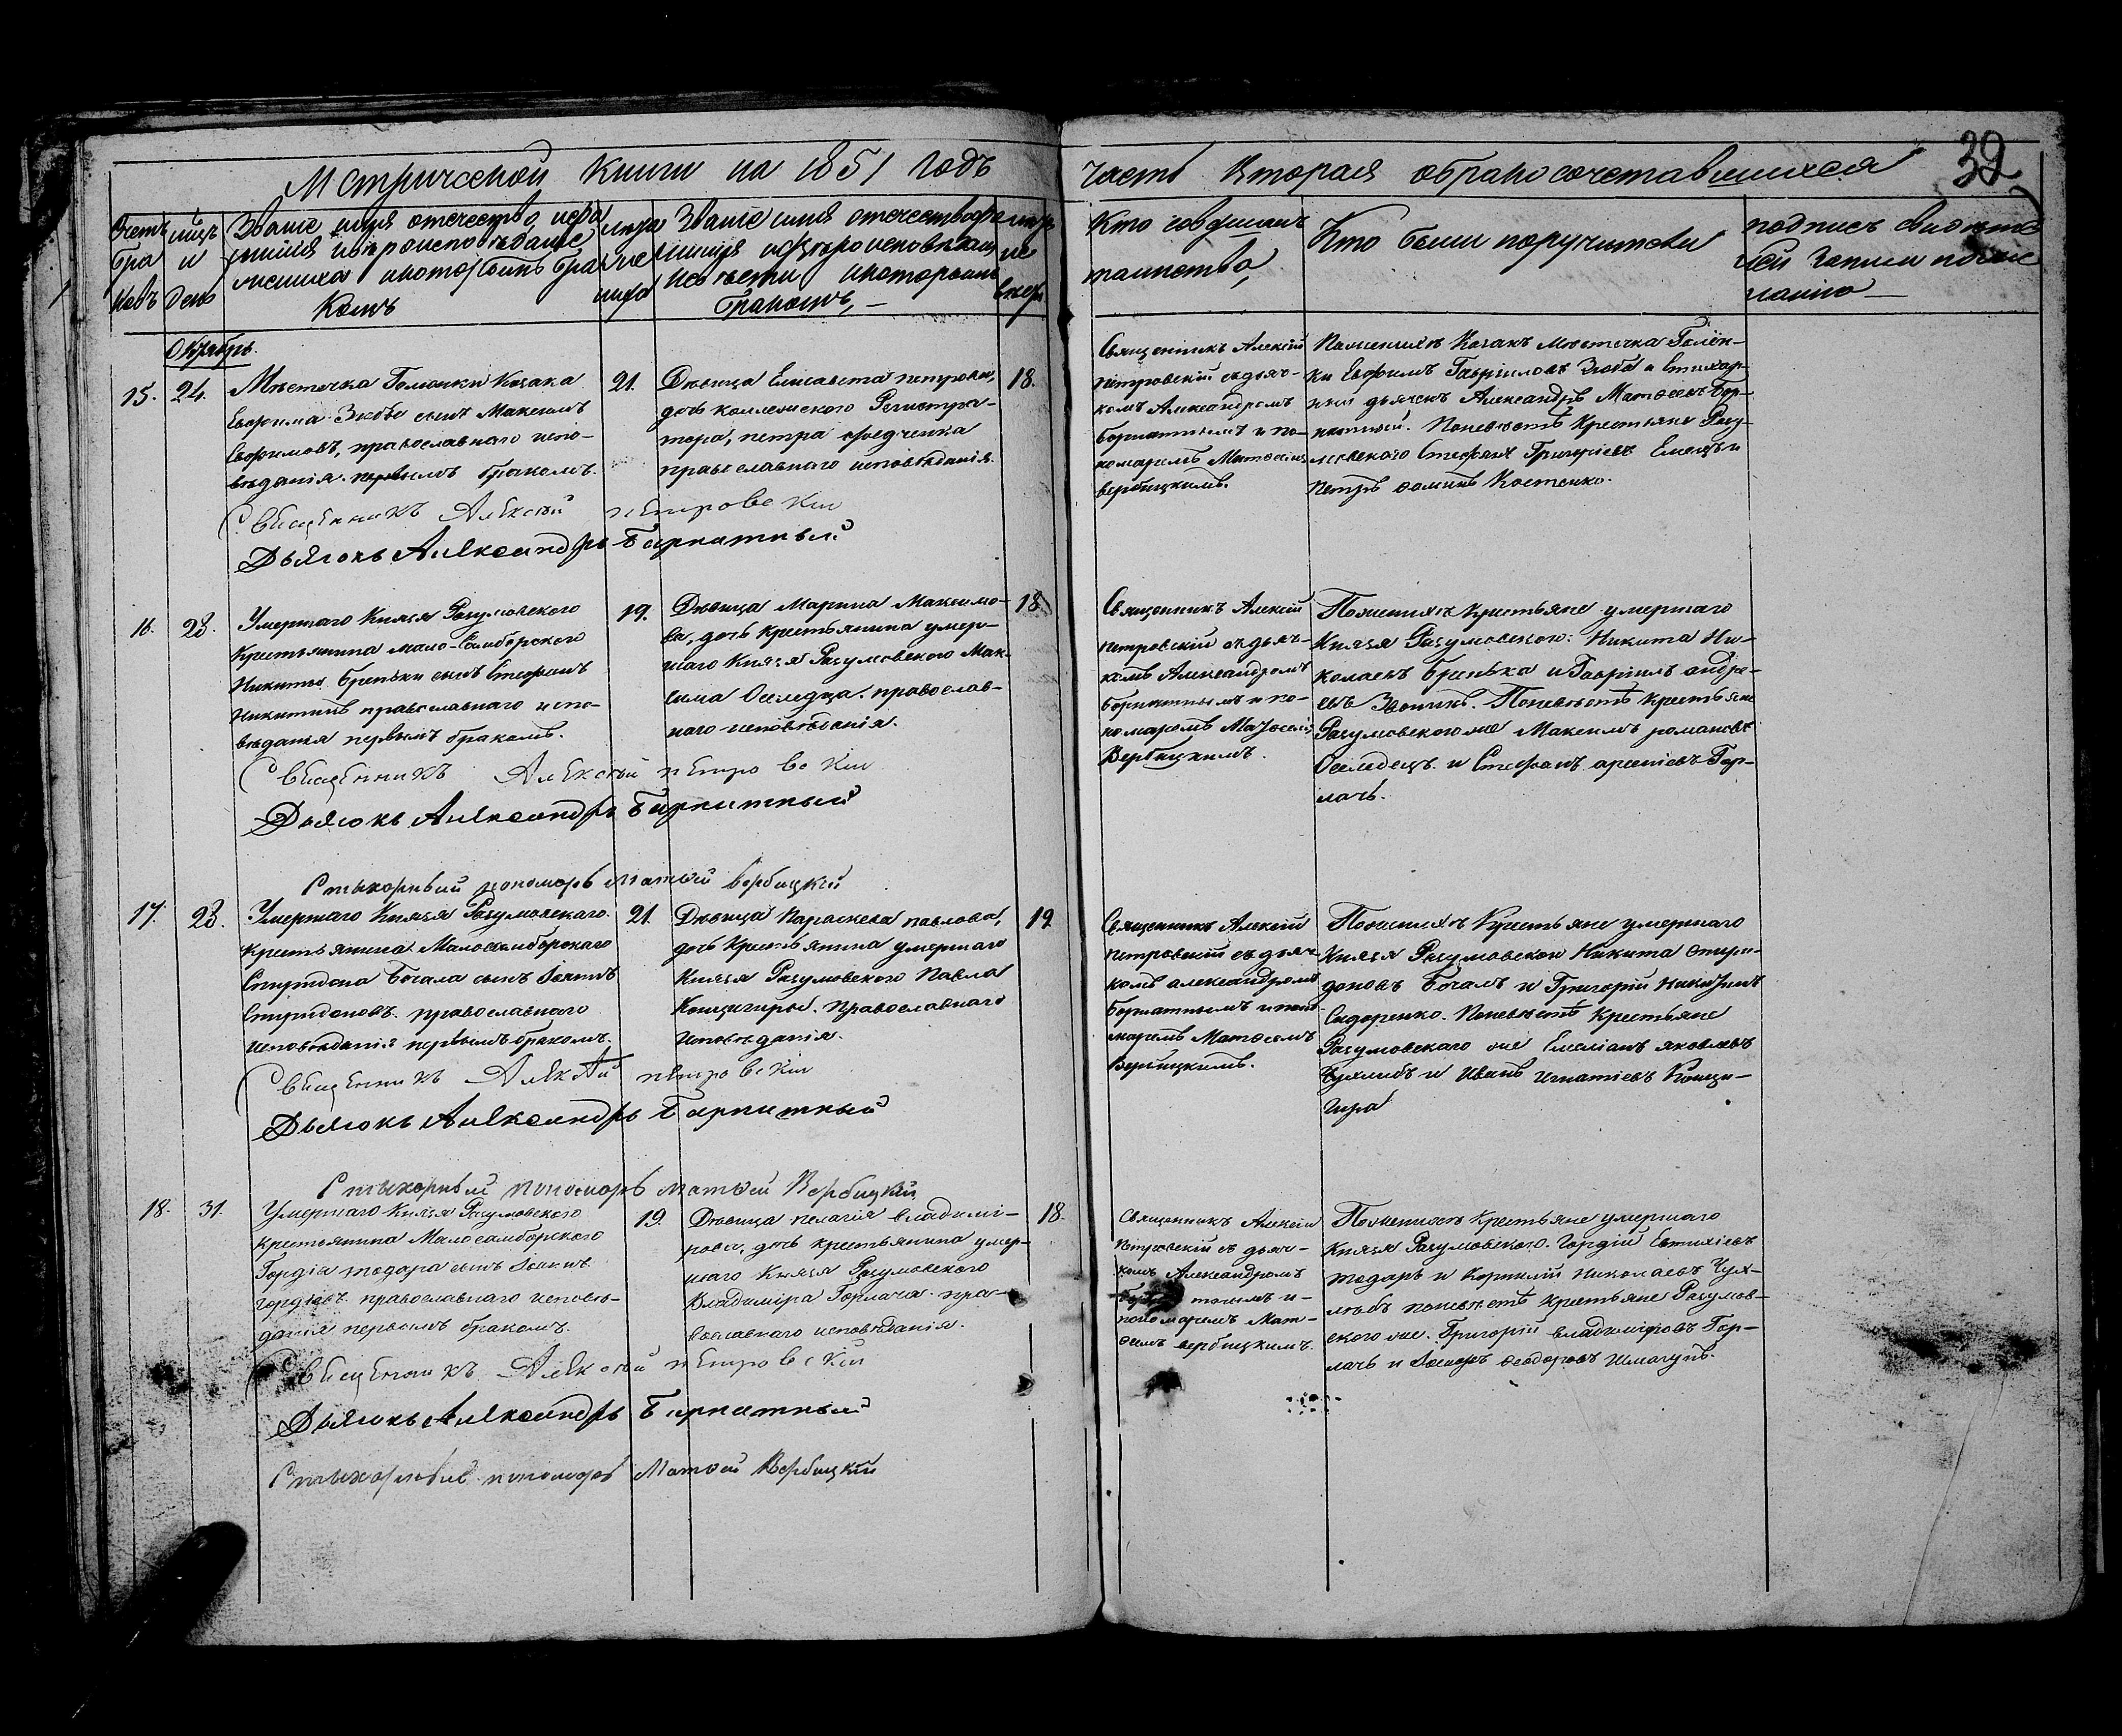 Метрической книги на 1851 годъ
часть вторая о бракосочетавшихся
39
Счетъ браковъ
мцъ и день
Званіе, имя отечество, фамилія и вѣроисповѣданіе жениха и которымъ бракомъ
лета жениха
Званіе имя отечество фамилія и вѣроисповѣданіе невѣсты и которымъ бракомъ,
лета невѣсты
Кто совершалъ таинство,
Кто были поручители
подпись свидѣтелей записи по желанію
Октябрь.
15.
24.
Мѣстечка Голонки Козака
Евфима Зюбы сынъ Максимъ
Евфимовъ, православнаго испо-
вѣданія первымъ бракомъ.
21.
Дѣвица Елисавета петрова,
дочь коллежского Регистра-
тора, петра Федченка
православнаго исповѣданія.
18.
Священникъ Алексій
петровскій съ дьяч-
комъ Александромъ
Боржатнымъ и по-
номаремъ Матѳеемъ
вербицкимъ.
По женихѣ Козакъ Мѣстечка Голён-
ки Евфимъ Гавриловъ Зюба и Стихар-
ный дьячекъ Александръ Матѳеевъ Бор-
жатный. По невѣстѣ Крестьяне Разу-
мовского Стефанъ Григоріевъ Емецъ и
Петръ Ѳоминъ Костенко.
Священникъ Алексѣй петровскій
Дьячокъ Александръ Боржатный
16.
28.
Умершаго Князя Разумовского
Крестьянина мало-Самборского
Никиты Бреньки сынъ Стефанъ
Никитинъ православнаго испо-
вѣданія первымъ бракомъ.
19.
Дѣвица Марина Максимо-
ва, дочь крестьянина умер-
шаго Князя Разумовского Мак-
сима Оселедца. православ-
наго исповѣданія.
18.
Священникъ Алексій
петровскій съ дьяч-
комъ Александромъ
Боржатнымъ и по-
номаремъ Матѳеемъ
Вербицкимъ.
По женихѣ крестьяне умершаго
Князя Разумовского: Никита Ни-
колаевъ Бренька и Гавріилъ андре-
евъ Зѣтикъ. По невѣстѣ крестьяне
Разумовского же Максимъ романовъ
Оселедецъ и Стефанъ арсеніевъ Гор-
лачъ.
Священникъ Алексѣй петровскій
Дьячокъ Александръ Боржатный
Стыхорный пономорь Матѳей Вербицкій
17.
28.
Умершаго Князя Разумовскаго
крестьянина Малосамборскаго
Спиридона Бочала сынъ Іоаннъ
Спиридоновъ православнаго
исповѣданія первымъ бракомъ.
21.
Дѣвица Параскева павлова,
дочь Крестьянина умершаго
Князя Разумовского Павла
Концигиры. Православнаго
Исповѣданія.
19
Священникъ Алексій
петровскій съ дьяч-
комъ александромъ
Боржатнымъ и поно-
маремъ Матѳеемъ
Вербицкимъ.
По женихѣ Крестьяне умершаго
Князя Разумовского Никита Спири-
доновъ Бочалъ и Григорій Никитинъ
Сидоренко. По невѣстѣ Крестьяне
Разумовскаго же Емеліанъ яковлевъ
Чухлибъ и Иванъ Игнатіевъ Конци-
гира
Священникъ Алексѣй петровскій
Дьячокъ Александръ Боржатный
Стыхорный пономорь Матѳей Вербицкій
18.
31.
Умершаго Князя Разумовского
крестьянина Малосамборского
Гордія тодара сынъ Іоаннъ
гордіевъ православнаго исповѣ-
данія первымъ бракомъ.
19.
Дѣвица пелагія владимі-
рова, дочь крестьянина умер-
шаго Князя Разумовского
Владиміра Горлача. пра-
вославнаго исповѣданія.
18.
Священникъ Алексій
Петровскій съ дьяч-
комъ Александромъ
и
пономаремъ Мат-
ѳеемъ вербицкимъ.
По женихѣ Крестьяне умершаго
Князя Разумовского. Гордій Евтихіевъ
тодаръ и Корнилій Николаевъ Чух-
либъ по невѣстѣ крестьяне Разумов-
ского же. Григорій владиміровъ Гор-
лачъ и Іосифъ Ѳеодоровъ Шмагунъ.
Священникъ Алексѣй петровскій
Дьячокъ Александръ Боржатный
Стыхорный пономорь Матѳей Вербицкій